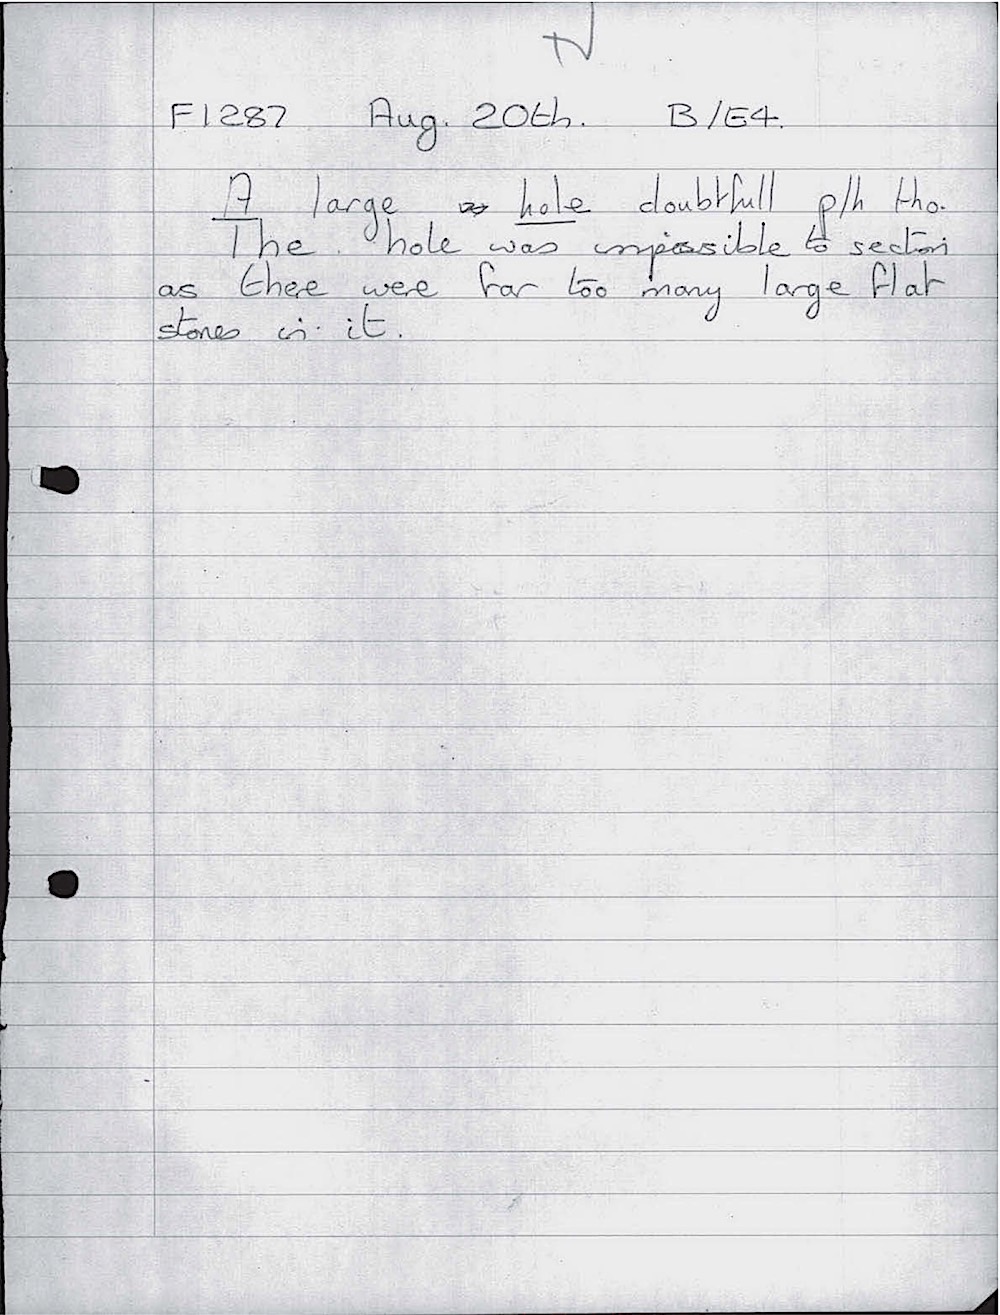 F1287 Aug. 20th. B/E4.
A large hole doubtfull p/h tho.
The hole was impossible to section
as there were far too many large flat
stones in it.